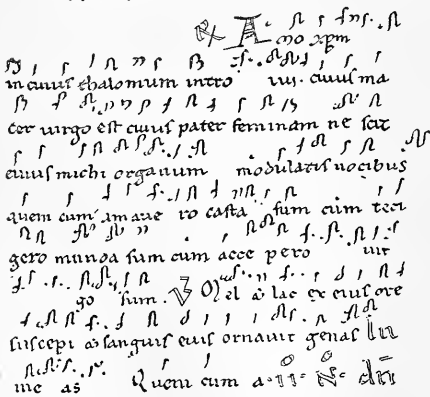 Amo xpm
in cuius thalomum intro ivi. cuius ma
ter virgo est cuius pater feminam ne scit
cuius michi organum modulatis vocibus
quem cum amave ro casta sum cum teti
gero munda sum cum acce pero vir
go sum. V Mel & lac ex eius ore
suscepi & sanguis eius ornavit genas In
me as Quem cum a.